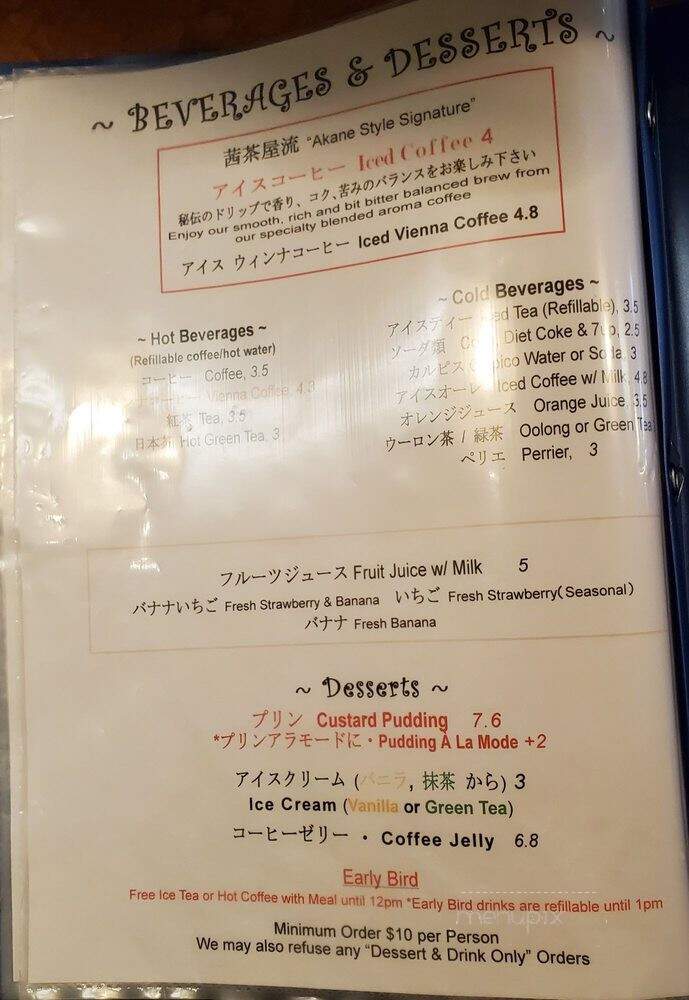 ~ BEVERAGES & DESSERTS ~
茜茶屋流 "Akane Style Signature"
アイスコーヒー Iced Coffee 4
秘伝のドリップで香り、コク、苦みのバランスをお楽しみ下さい
Enjoy our smooth, rich and bit bitter balanced brew from
our specialty blended aroma coffee
アイス ウィンナコーヒー Iced Vienna Coffee 4.8
~ Hot Beverages ~
(Refillable coffee/hot water)
コーヒー Coffee, 3.5
Vienna Coffee 4.3
紅茶 Tea, 3.5
日本茶 Hot Green Tea, 3
~ Cold Beverages ~
アイスティー Tea (Refillable), 3.5
ソーダ類 Diet Coke & 7up, 2.5
カルピス Water or Soda, 3
アイスオーレ Iced Coffee w/ Milk, 4.8
オレンジジュース Orange Juice, 3.5
ウーロン茶 / 緑茶 Oolong or Green Tea
ペリエ Perrier, 3
フルーツジュース Fruit Juice w/ Milk 5
バナナいちご Fresh Strawberry & Banana いちご Fresh Strawberry(Seasonal)
バナナ Fresh Banana
~ Desserts ~
プリン Custard Pudding 7.6
*プリンアラモードに・Pudding À La Mode +2
アイスクリーム (バニラ, 抹茶 から) 3
Ice Cream (Vanilla or Green Tea)
コーヒーゼリー ・ Coffee Jelly 6.8
Early Bird
Free Ice Tea or Hot Coffee with Meal until 12pm *Early Bird drinks are refillable until 1pm
menupix
Minimum Order $10 per Person
We may also refuse any "Dessert & Drink Only" Orders